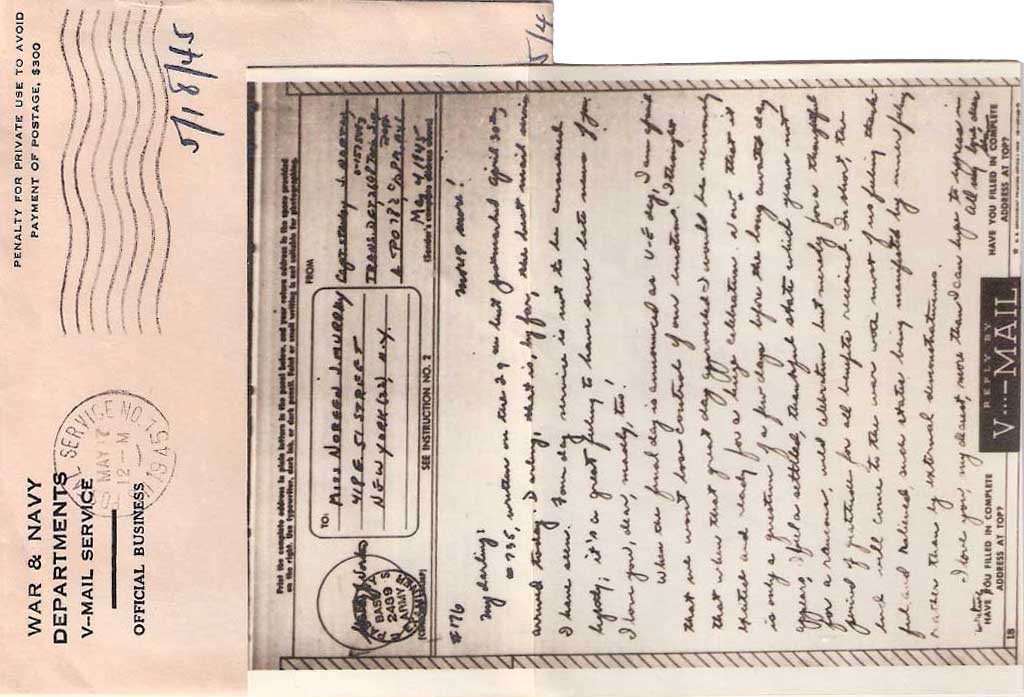 WAR & NAVY
DEPARTMENTS
V-MAIL SERVICE
OFFICIAL BUSINESS
PENALTY FOR PRIVATE USE TO AVOID
PAYMENT OF POSTAGE, $300
SERVICE NO.
MAY
12-M
1945
5/18/45
5/4
Print the complete address in plain letters in the panel below, and your return address in the space provided
on the right. Use typewriter, dark ink, or dark pencil. Faint or small writing is not suitable for photographing.
TO:
MISS NOREEN J. MURRAY
41 P.E. 51 STREET
NEW YORK (22) N.Y.
FROM
Capt.
MAY 4 1945
(Sender's complete address above)
SEE INSTRUCTION NO. 2
PASSED BY
BASE
2489
ARMY EXAMINER
(CENSOR'S STAMP)
#176
MOVIP more!
My darling!
#735, written on the 29th but postmarked April 30th,
arrived today. Darling, that is, by far, the best mail service
I have seen. Some day service is not to be considered
; it's a great feeling to have such late news of you.
I love you, dear, madly, too!
When the final day is announced as V-E day, I am afraid
that we won't lose control of our emotions. I thought
that when that great day approached I would be nervously
excited and ready for a huge celebration. Now that it
is only a question of a few days before the long awaited day
appears, I feel a settled, thankful state which yearns not
for a raucous, wild celebration but merely for a thankful
period of gratitude for all benefits received. In short, the
end will come to the war with most of us feeling thank-
ful and relieved, such states being manifested by inner feeling
rather than by external demonstrativeness.
I love you, my dearest, more than I can hope to express in
writing.
All my love dear
HAVE YOU FILLED IN COMPLETE
ADDRESS AT TOP?
REPLY BY
V···—MAIL
HAVE YOU FILLED IN COMPLETE
ADDRESS AT TOP?
18